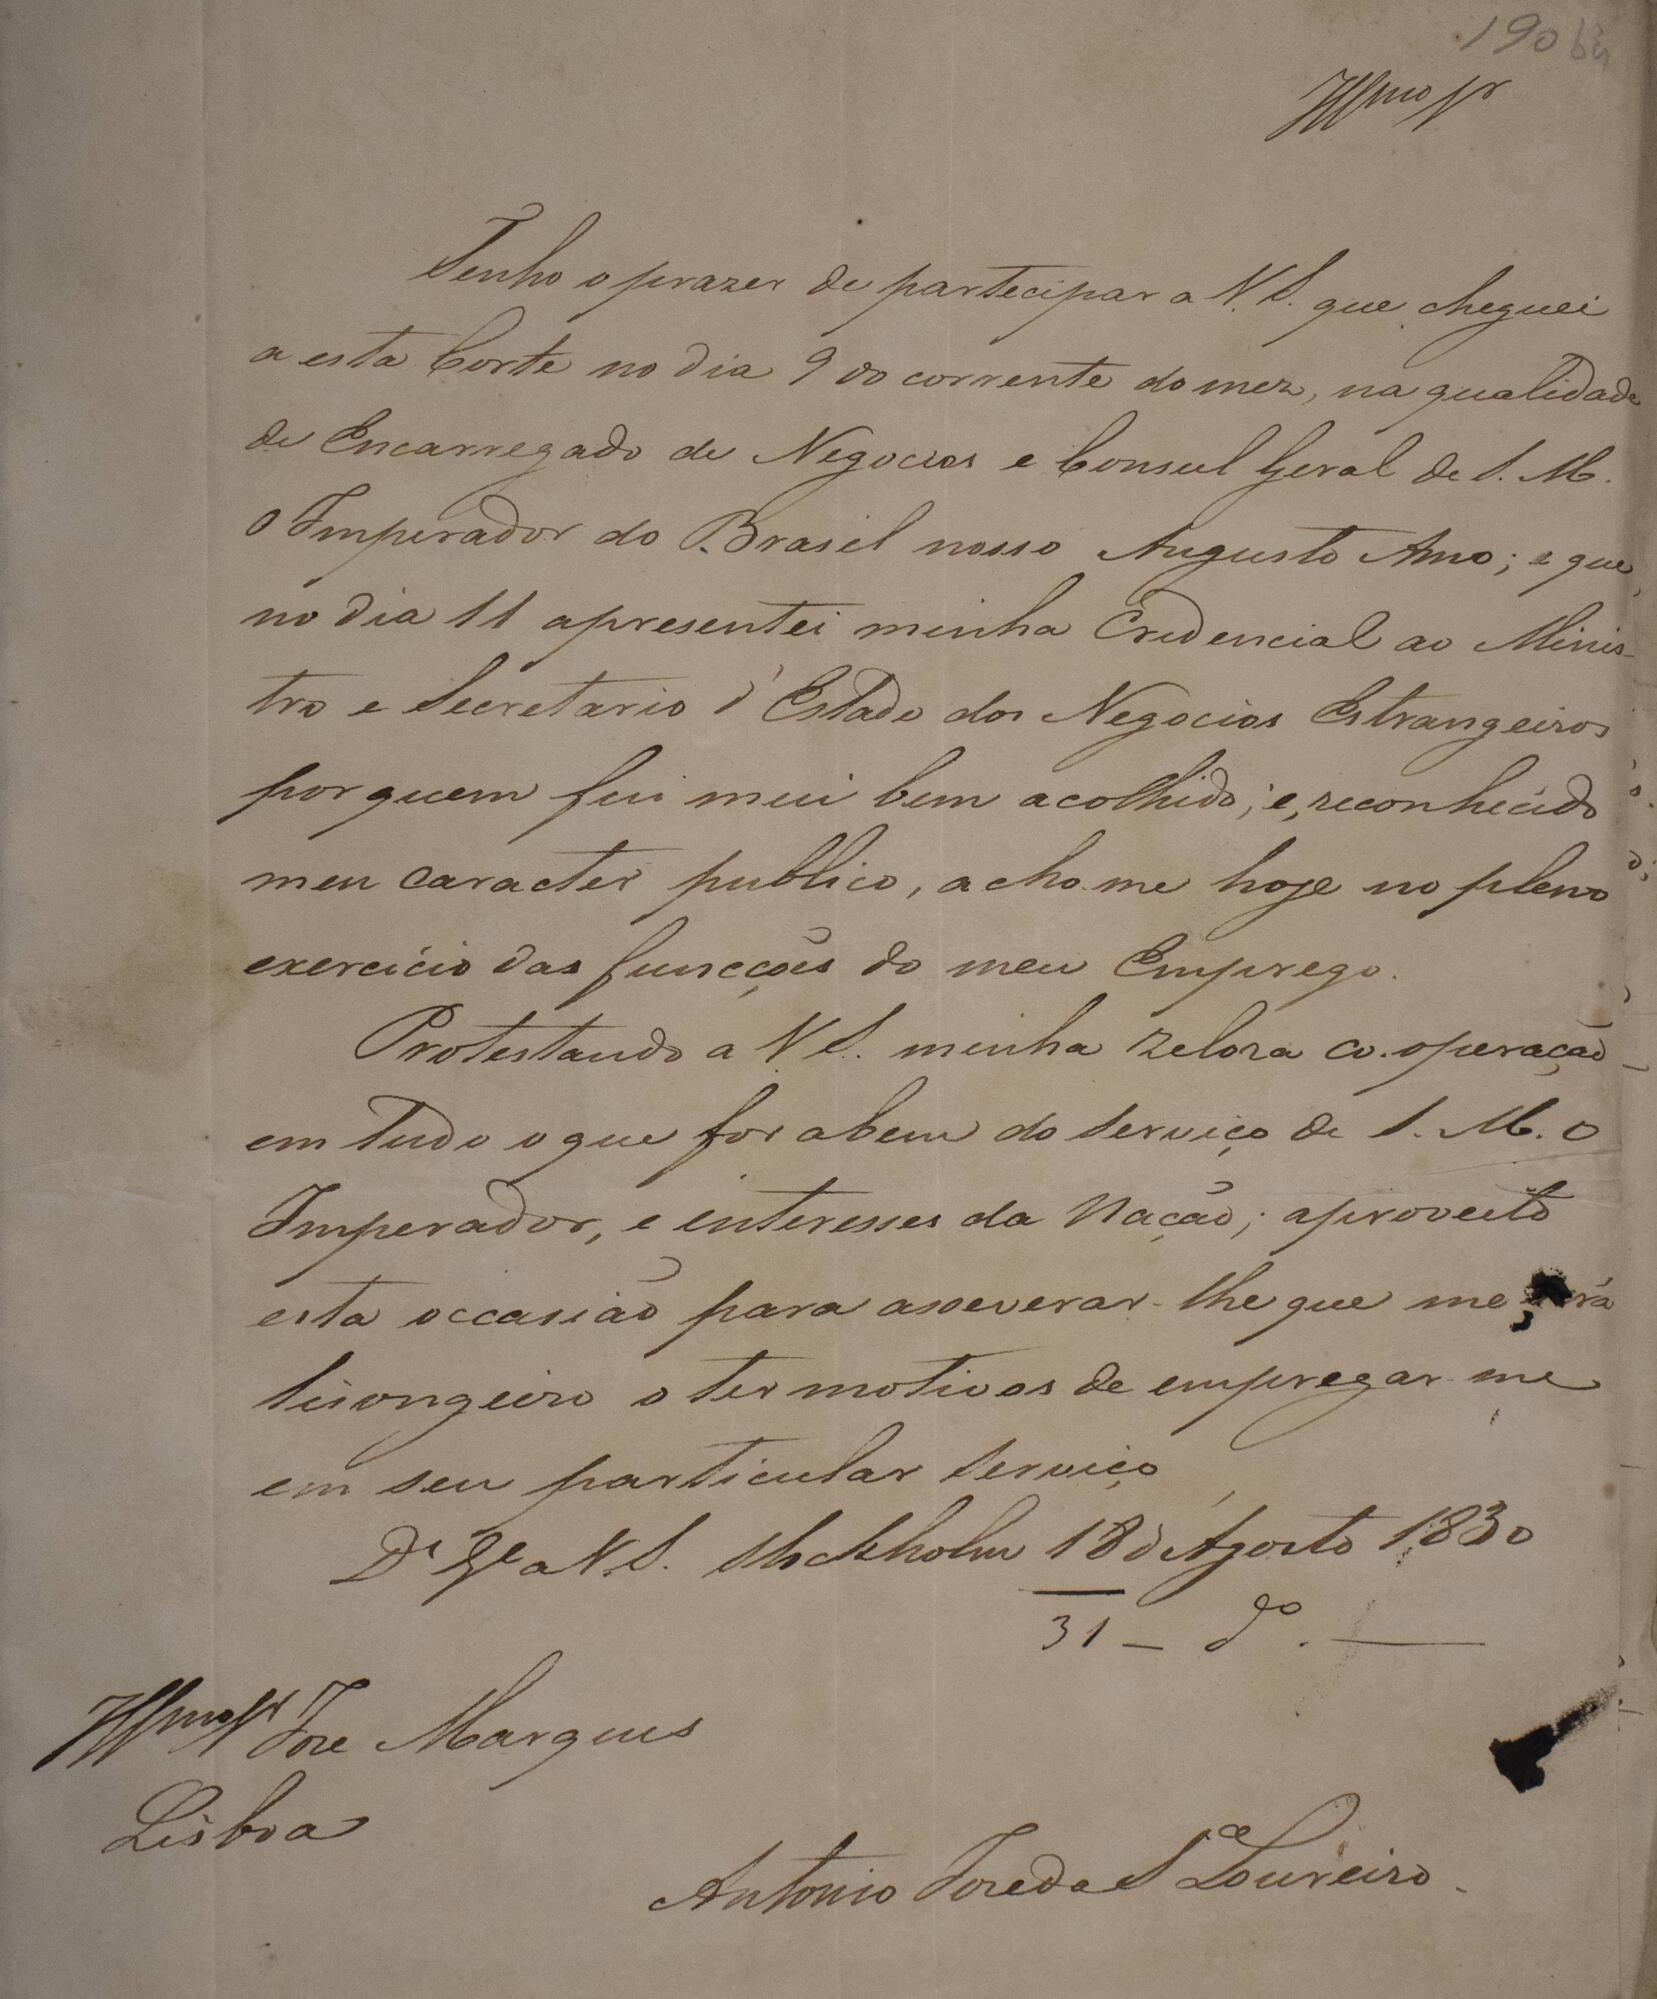 190 bis
Illmo Sr
Tenho o prazer de partecipar a V. S. que cheguei
a esta Corte no dia 9 do corrente do mez, na qualidade
de Encarregado de Negocios e Consul Geral de S. M.
O Imperador do Brasil nosso Augusto Amo; e que,
no dia 11 apresentei minha Credencial ao Minis-
tro e Secretario d'Estado dos Negocios Estrangeiros
por quem fui mui bem acolhido; e, reconhecido
meu caracter publico, acho-me hoje no pleno
exercicio das funcções do meu Emprego.
Protestando a V. S. minha zeloza co-operação
em tudo o que for a bem do serviço de S. M. O
Imperador, e interesses da Nação; aproveito
esta occasião para asseverar-lhe que me será
lisongeiro o ter motivos de empregar-me
em seu particular serviço
Ds Ge a V. S. Stockholm 18 d'Agosto 1830
31 — do. —
Illmo Sr Joze Marques
Lisboa
Antonio Joze da Sa Loureiro.